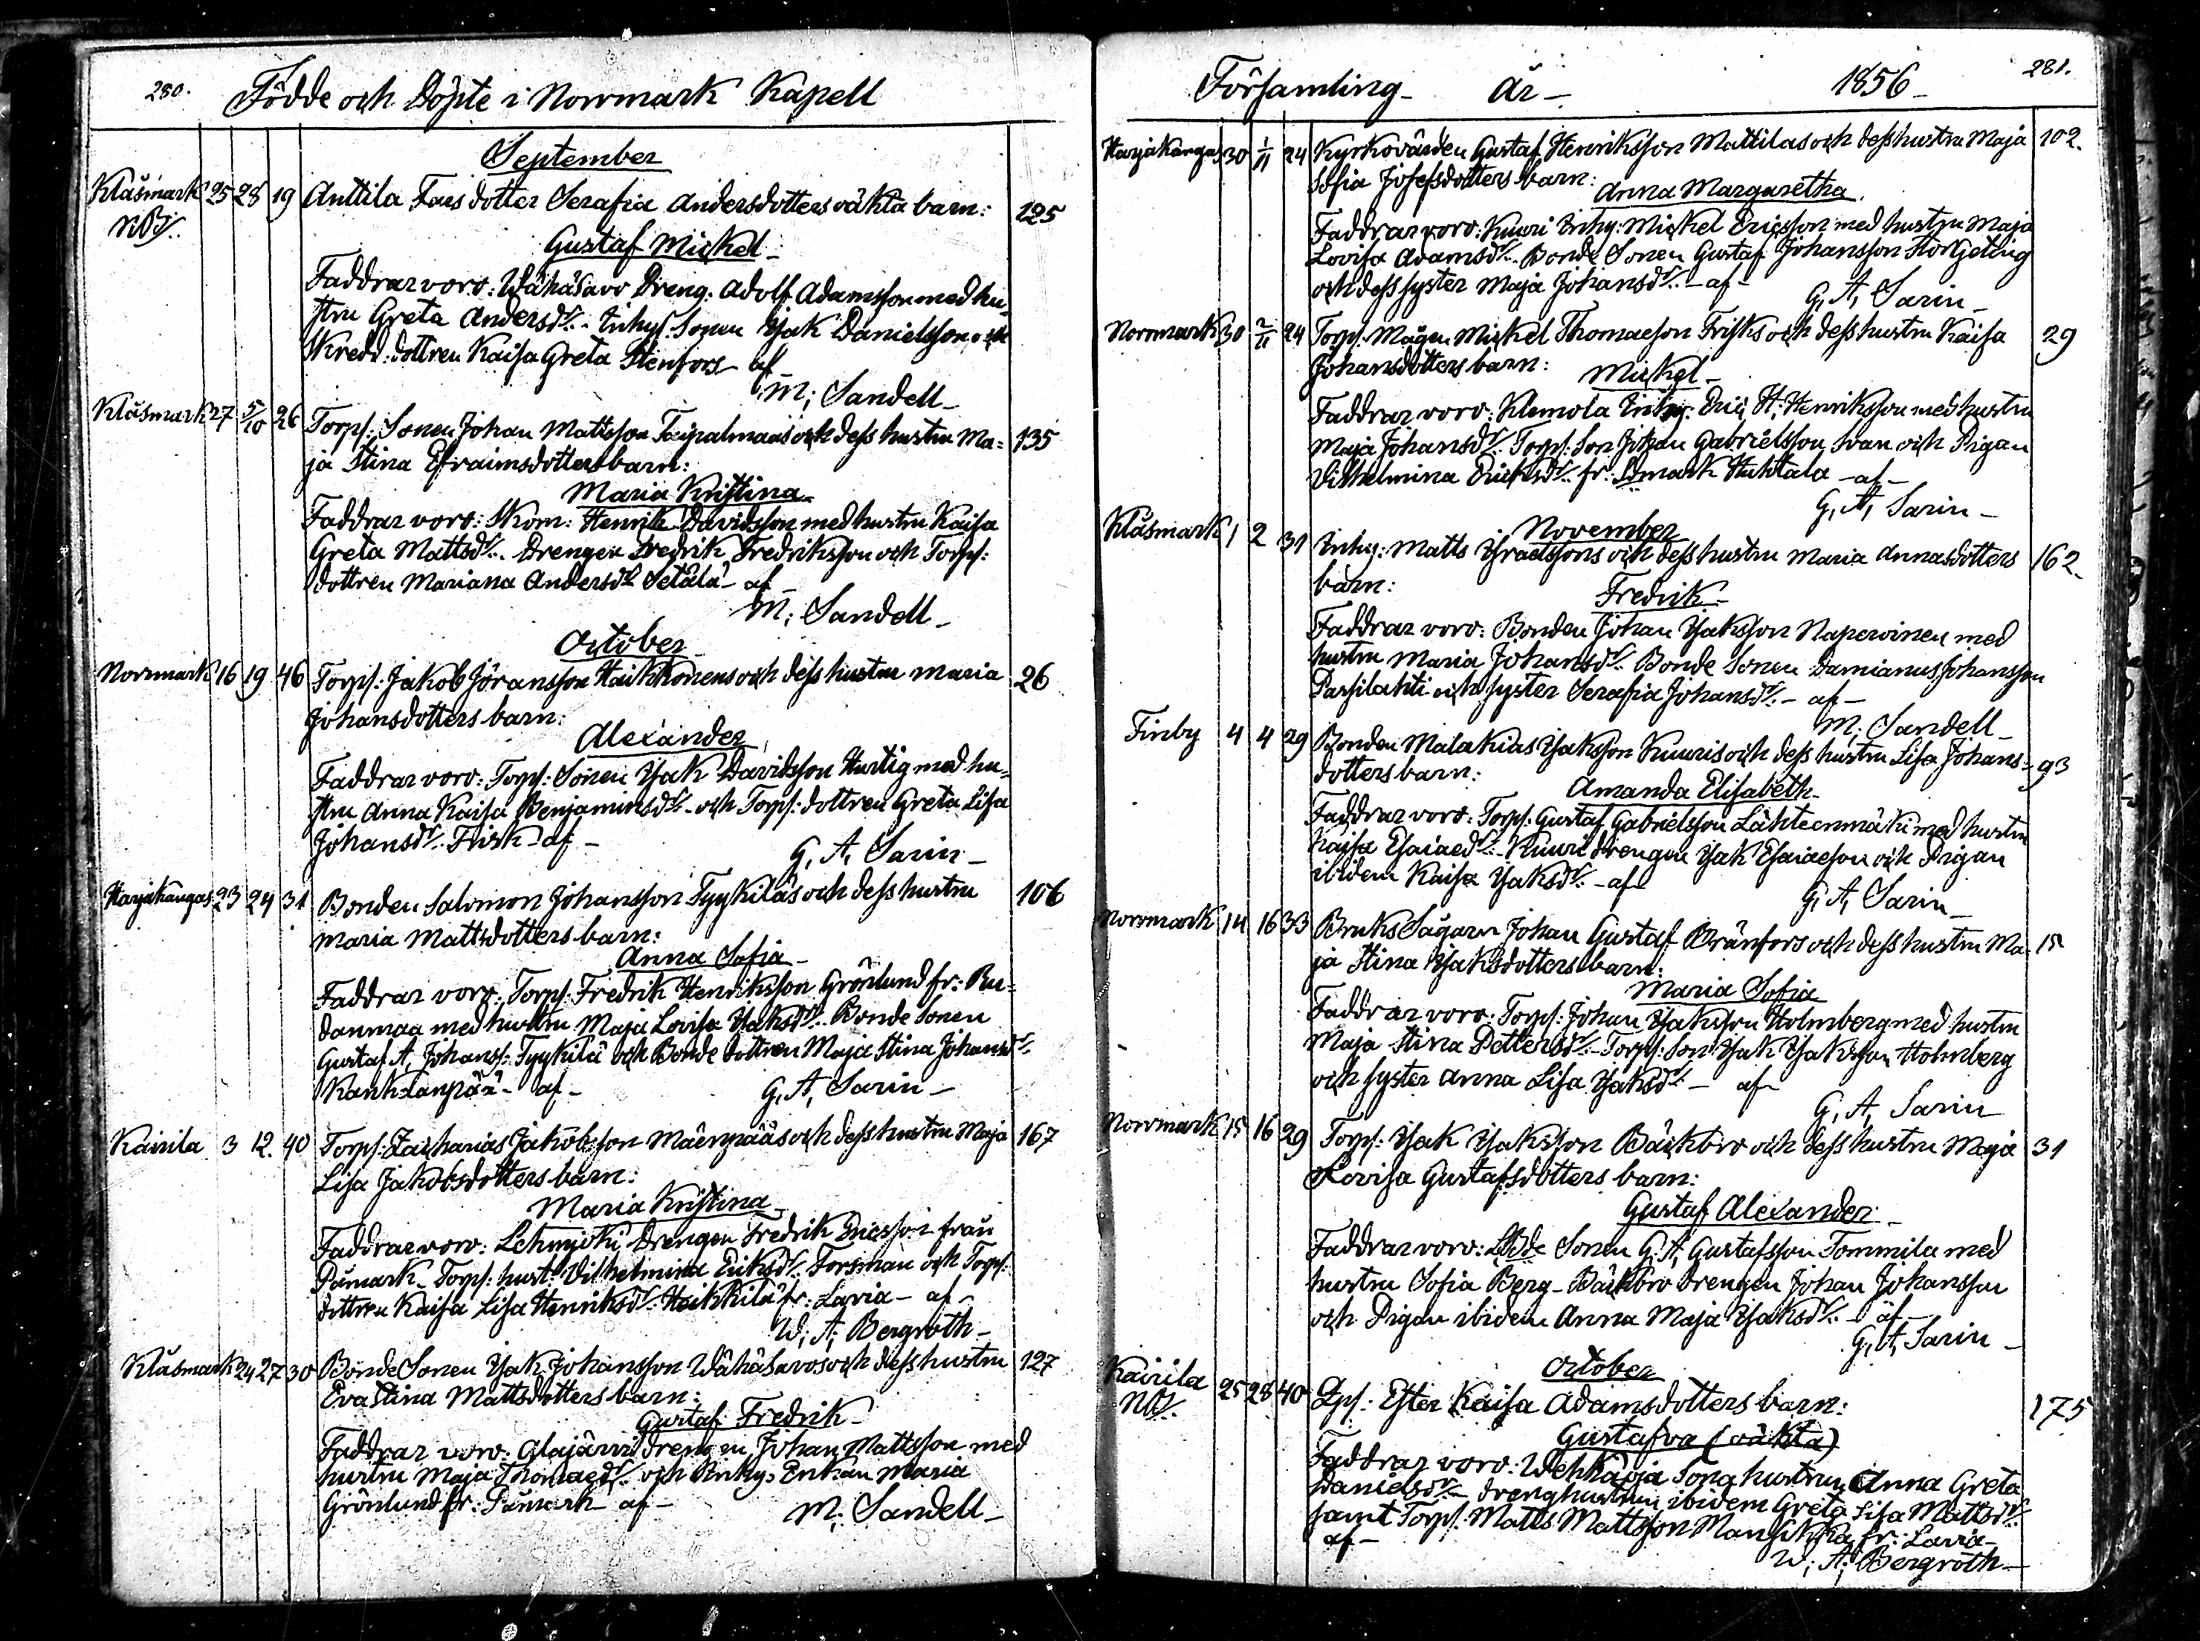 280. Födde och Döpte i Norrmark Kapell
September
Klåsmark 25 28 19 Anttila Fars dotter Serafia Andersdotters oäkta barn: 125
NB
Gustaf Mickel
Faddrar voro: Wähäsavo Dreng: Adolf Adamsson med hu-
stru Greta Andersdr. Inhys. Sonen Isak Danielsson och
Skredd. dottren Kaisa Greta Stenfors af
M. Sandell
Klåsmark 27 5/10 26 Torp: Sonen Johan Mattsson Taipalmaas och dess hustru Ma- 135
ja Stina Efraimsdotters barn:
Maria Kristina
Faddrar voro: Skom: Henrik Davidsson med hustru Kaisa
Greta Mattsdr. Drengen Fredrik Fredriksson och Torp:
dottren Mariana Andersdr Setälä af
M. Sandell
October
Norrmark 16 19 46 Torp: Jakob Jöransson Haikkonens och dess hustru Maria 26
Johansdotters barn:
Alexander
Faddrar voro: Torp: Sonen Isak Davidsson Hurtig med hu-
stru Anna Kaisa Benjaminsdr. och Torp: dottren Greta Lisa
Johansdr. Frisk af
G. A. Sarin
Harjakangas 23 24 31 Bonden Salomon Johansson Tyykiläs och dess hustru 106
Maria Mattsdotters barn:
Anna Sofia
Faddrar voro: Torp: Fredrik Henriksson Grönlund fr: Ru-
danmaa med hustru Maja Lovisa Isaksdr. Bonde Sonen
Gustaf A. Johanss: Tyykilä och Bonde dottren Maja Stina Johansdr.
Kankaanpää af
G. A. Sarin
Kairila 3 12. 40 Torp: Zacharias Jakobsson Mäenpääs och dess hustru Maja 167
Lisa Jakobsdotters barn:
Maria Kristina
Faddrar voro: Lehmijoki Drengen Fredrik Ericsson från
Påmark Torp: hust: Vilhelmina Eriksdr. Forsman och Torp:
dottren Kaisa Lisa Henriksdr. Heikkilä fr: Lavia af
W. A. Bergroth
Klåsmark 24 27 30 Bonde Sonen Isak Johansson Wähäsavos och dess hustru 127
Eva Stina Mattsdotters barn:
Gustaf Fredrik
Faddrar voro: Alajärvi drengen Johan Mattsson med
hustru Maja Thomaedr. och Inhys Enkan Maria
Grönlund fr: Påmark af
M. Sandell
Församling År 1856 281.
Harjakangas 30 1/11 24 Kyrkovärden Gustaf Henriksson Mattilas och dess hustru Maja 102.
Sofia Josefsdotters barn:
Anna Margaretha
Faddrar voro: Knuuri Inhy: Mickel Ericsson med hustru Maja
Lovisa Adamsdr. Bonde Sonen Gustaf Johansson Storgeting
och dess syster Maja Johansdr. af
G. A. Sarin
Norrmark 30 2/11 24 Torp. Mågen Mickel Thomaeson Frisks och dess hustru Kaisa 29
Johansdotters barn:
Mickel
Faddrar voro: Klemola Inhy: Eric H. Henriksson med hustru
Maja Johansdr. Torp: Son Johan Gabrielsson Svan och Pigan
Vilhelmina Ericksdr. fr: Påmark Huhtala af
G. A. Sarin
November
Klåsmark 1 2 31 Inhy: Matts Israelssons och dess hustru Maria Annasdotters 162.
barn:
Fredrik
Faddrar voro: Bonden Johan Isaksson Naperoinen med
hustru Maria Johansdr. Bonde Sonen Damianus Johansson
Passilahti och syster Serafia Johansdr. af
M. Sandell
Finby 4 4 29 Bonden Malakias Isaksson Knuuris och dess hustru Lisa Johans- 93
dotters barn:
Amanda Elisabeth
Faddrar voro: Torp: Gustaf Gabrielsson Lähteenmäki med hustru
Kaisa Esaiaedr. Knuuri drengen Isak Esaiaeson och Pigan
ibidem Kaisa Isaksdr. af
G. A. Sarin
Norrmark 14 16 33 Bruks Sågaren Johan Gustaf Bränfors och dess hustru Ma- 15
ja Stina Isaksdotters barn:
Maria Sofia
Faddrar voro: Torp: Johan Isaksson Holmberg med hustru
Maja Stina Pettersdr. Torp: Son Isak Isaksson Holmberg
och syster Anna Lisa Isaksdr. af
G. A. Sarin
Norrmark 15 16 29 Torp: Isak Isaksson Bäckbro och dess hustru Maja 31
Lovisa Gustafsdotters barn:
Gustaf Alexander
Faddrar voro: Bde Sonen G. A. Gustafsson Tommila med
hustru Sofia Berg Bäckbro drengen Johan Johansson
och Pigan ibidem Anna Maja Isaksdr. af
G. A. Sarin
October
Kairila 25 28 40 Ester Kaisa Adamsdotters barn: 175
NB
Gustafva (oäkta)
Faddrar voro: Wehkaoja Sonahustrun Anna Greta
Danielsdr. drenghustrun ibidem Greta Lisa Mattsdr.
samt Torp: Matts Mattsson Mansikka fr: Lavia
af
W. A. Bergroth